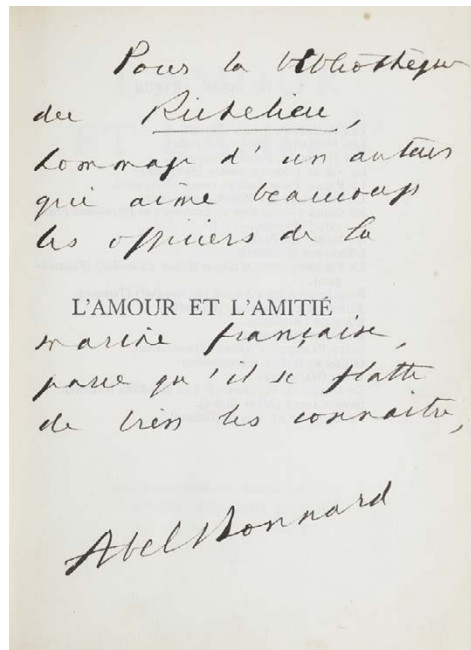 Pour la bibliothèque
du Richelieu,
hommage d'un auteur
qui aime beaucoup
les officiers de la
L'AMOUR ET L'AMITIÉ
marine française,
parce qu'il se flatte
de bien les connaitre,
Abel Bonnard